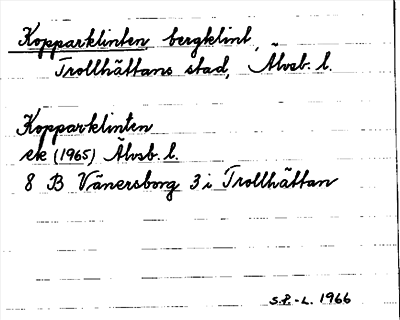 Kopparklinten bergklint,
Trollhättans stad, Älvsb. l.
Kopparklinten
ek (1965) Älvsb. l.
8 B Vänersborg 3 i Trollhättan
S.P.-L. 1966